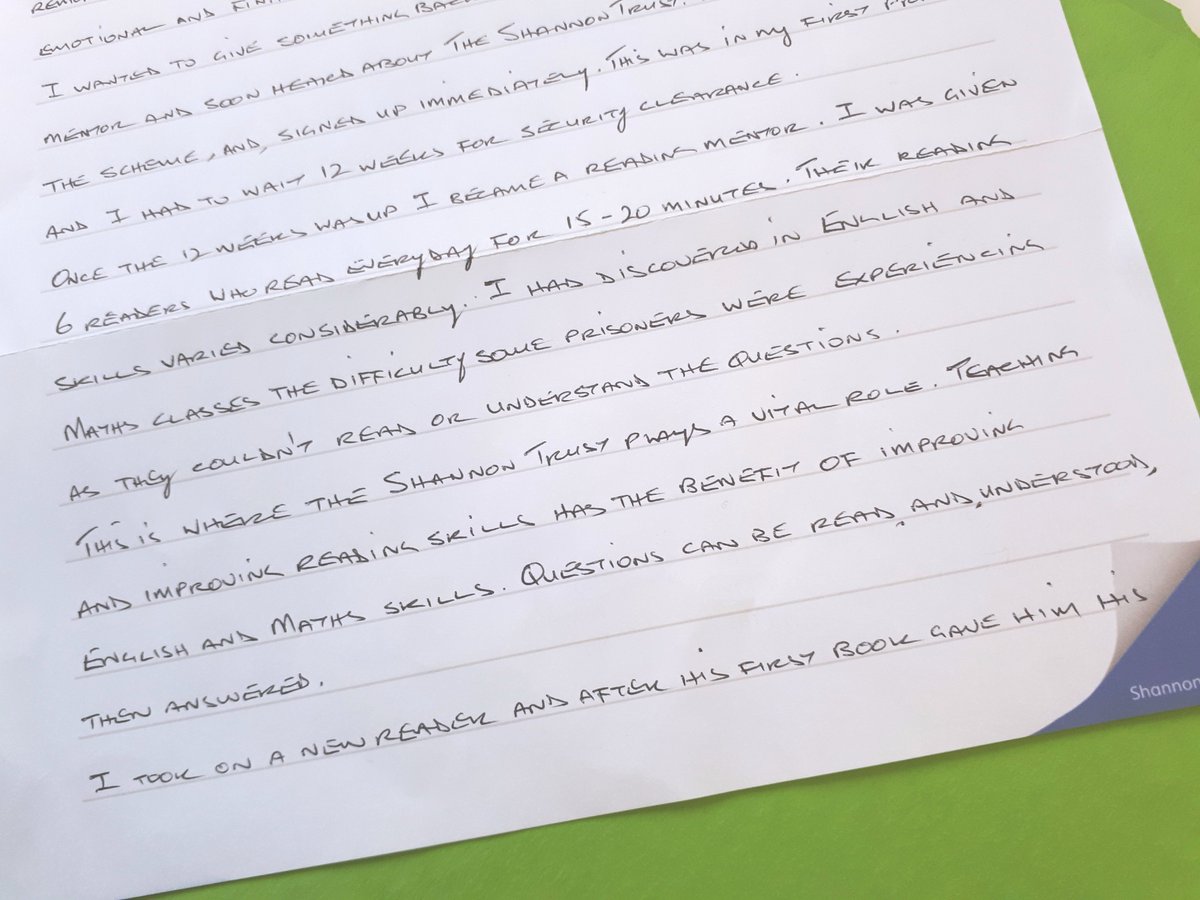 EMOTIONAL AND
I WANTED TO GIVE SOMETHING BACK
MENTOR AND SOON HEARD ABOUT THE SHANNON TRUST.
THE SCHEME, AND, SIGNED UP IMMEDIATELY. THIS WAS IN MY FIRST
AND I HAD TO WAIT 12 WEEKS FOR SECURITY CLEARANCE.
ONCE THE 12 WEEKS WAS UP I BECAME A READING MENTOR. I WAS GIVEN
6 READERS WHO READ EVERYDAY FOR 15-20 MINUTES. THEIR READING
SKILLS VARIED CONSIDERABLY. I HAD DISCOVERED IN ENGLISH AND
MATHS CLASSES THE DIFFICULTY SOME PRISONERS WERE EXPERIENCING
AS THEY COULDN'T READ OR UNDERSTAND THE QUESTIONS.
THIS IS WHERE THE SHANNON TRUST PLAYS A VITAL ROLE. TEACHING
AND IMPROVING READING SKILLS HAS THE BENEFIT OF IMPROVING
ENGLISH AND MATHS SKILLS. QUESTIONS CAN BE READ, AND, UNDERSTOOD,
THEN ANSWERED.
I TOOK ON A NEW READER AND AFTER HIS FIRST BOOK GAVE HIM HIS
Shannon